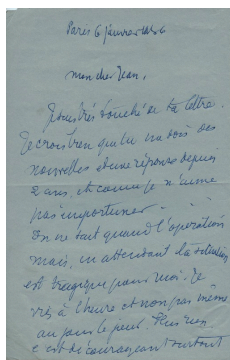 Paris 6 janvier
mon cher Jean,
Je suis très touché de ta lettre.
Je crois bien que tu me dois des
nouvelles et une réponse depuis
2 ans, et comme je n'aime
pas importuner.
quand l'opération
mais, en attendant la situation
est tragique pour moi. Je
vis à l'heure et non pas même
au jour le jour. Plus rien
c'est décourageant surtout